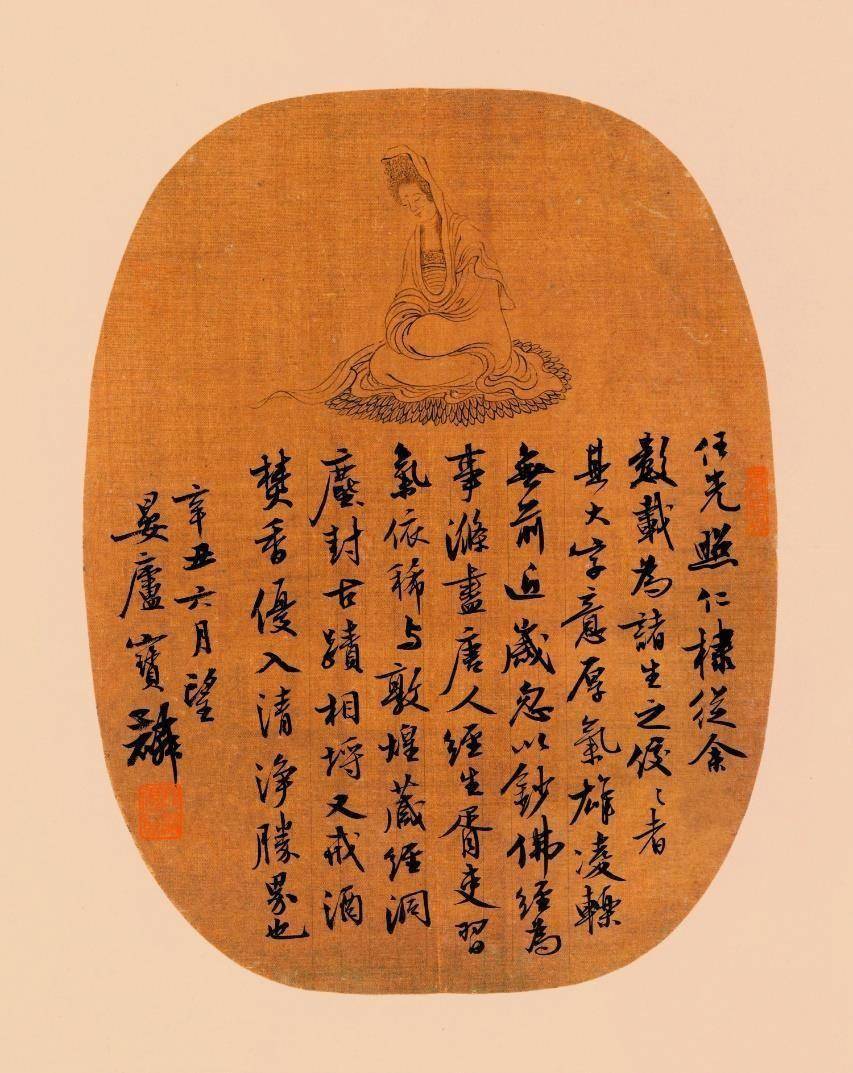 任光照仁棣從余
數載為諸生之佼〻者
其大字意厚氣雄凌轢
無前近歲忽以鈔佛經為
事滌盡唐人經生胥吏習
氣依稀与敦煌藏經洞
塵封古蹟相埒又戒酒
焚香優入清淨勝界也
辛丑六月望
晏廬寶麟